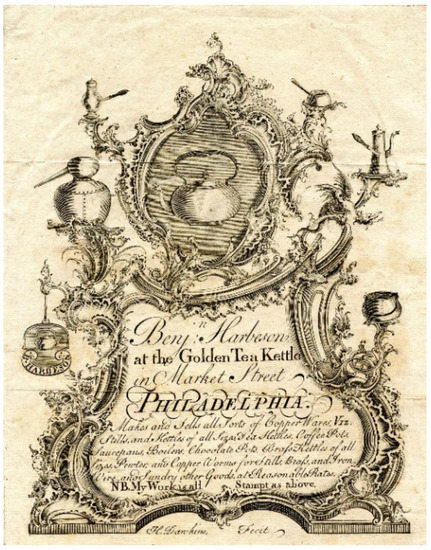 Benj:n Harbeson
at the Golden Tea Kettle
in Market Street
PHILADELPHIA.
HARBESON
Makes and Sells all Sorts of Copper Wares, Viz:
Stills, and Kettles of all Sizes, Tea Kettles, Coffee Pots
Saucepans, Boilers, Chocolate Pots, Brass Kettles of all
Sizes, Pewter, and Copper Worms for Stills, Brass, and Iron
and Sundry other Goods, at Reasonable Rates.
NB. My Work is all Stampt as above.
H. Dawkins, Fecit